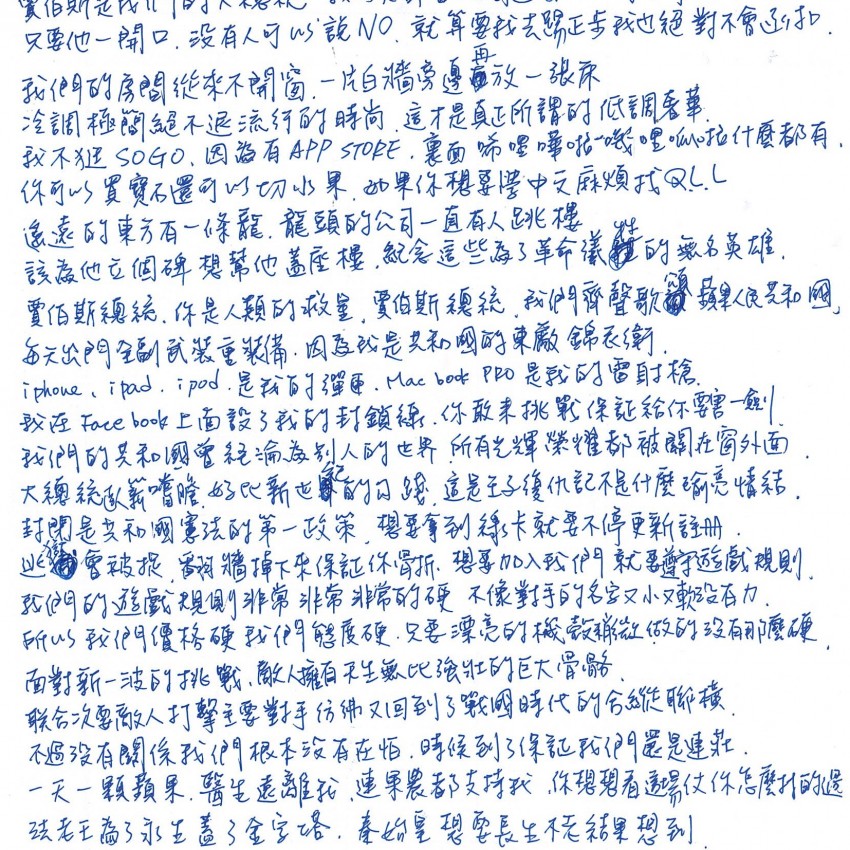 賈伯斯是我們的大總統
只要他一開口，沒有人可以說NO，就算要我去踢正步我也絕對不會凾扣
我們的房間從來不開窗，一片白牆旁邊再放一張床
冷調極簡絕不退流行的時尚，這才是真正所謂的低調奢華
我不逛SOGO，因為有APP STORE，裏面唏哩嘩啦嘰哩呱啦什麼都有，
你可以買寶石還可以切水果，如果你想要學中文麻煩找Q.L.L
遙遠的東方有一條龍，龍頭的公司一直有人跳樓
該為他立個碑想幫他蓋座樓，紀念這些為了革命犧牲的無名英雄，
賈伯斯總統，你是人類的救星，賈伯斯總統，我們齊聲歌頌蘋果人民共和國，
每天出門全副武裝重裝備，因為我是共和國的東廠錦衣衛，
iphone、ipad、ipod，是我的彈匣，Mac book PRO是我的雷射槍
我在Facebook上面設了我的封鎖線，你敢來挑戰保証給你要害一劍
我們的共和國曾經淪為別人的世界，所有光輝榮耀都被關在窗外面
大總統臥薪嚐膽，好比新世紀的勾踐，這是王子復仇記不是什麼瑜亮情結，
封閉是共和國憲法的第一政策，想要拿到綠卡就要不停更新註冊
逃獄會被捉，翻牆掉下來保証你骨折，想要加入我們就要遵守遊戲規則，
我們的遊戲規則非常非常非常的硬，不像對手的名字又小又軟沒有力，
所以我們價格硬我們態度硬，只要漂亮的機殼稍微做的沒有那麼硬，
面對新一波的挑戰，敵人擁有天生無比強壯的巨大骨骼
聯合次要敵人打擊主要對手彷彿又回到了戰國時代的合縱聯橫，
不過沒有關係我們根本沒有在怕，時候到了保証我們還是連莊
一天一顆蘋果，醫生遠離我，連果農都支持我，你想想看這場仗你怎麼打的過
法老王為了永生蓋了金字塔，秦始皇想要長生不老結果想到